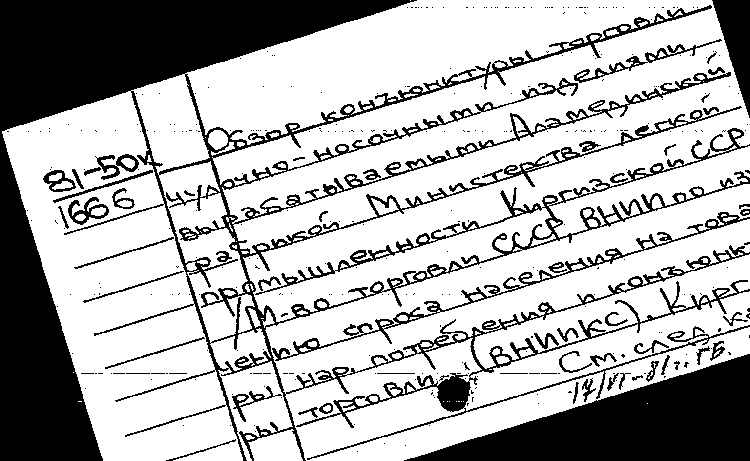 81-50к
1666
Обзор конъюнктуры торговли
чулочно-носочными изделиями,
вырабатываемыми Аламединской
фабрикой Министерства легкой
промышленности Киргизской ССР
/М-во торговли СССР, ВНИИ по изу
чению спроса населения на това
ры нар. потребления и конъюнкту
ры торговли (ВНИИКС). Кирг
См. след. к
17/VI-81г. ГБ.